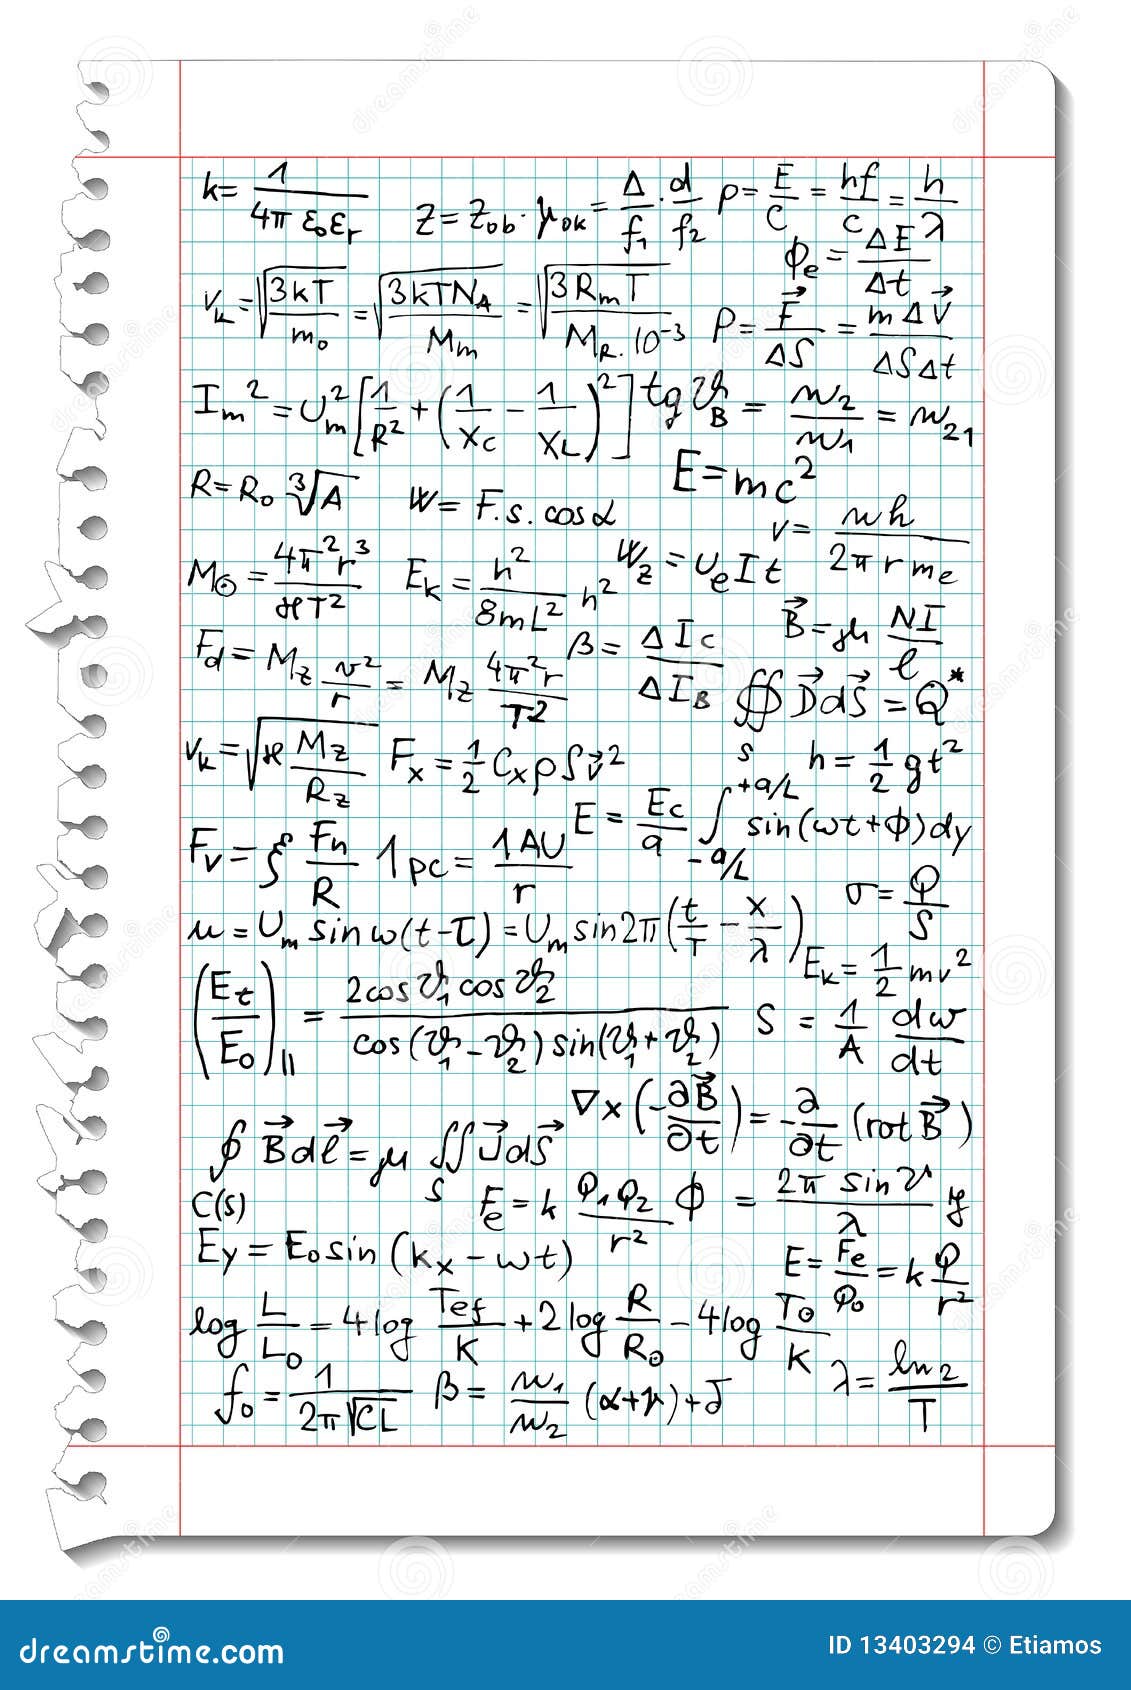 k = 1 / 4π ε₀εᵣ
Z = Z_ob · γ_ok = Δ/f₁ · d/f₂
p = E/c = hf/c = h/λ
Φ_e = ΔE/Δt
v_k = √(3kT/m₀) = √(3kTN_A/M_m) = √(3R_mT/M_R·10⁻³)
P = F⃗/ΔS = mΔv⃗/ΔSΔt
I_m² = U_m² [1/R² + (1/X_C − 1/X_L)²]
tg ϑ_B = n₂/n₁ = n₂₁
E = mc²
R = R₀ ∛A
W = F.s.cos α
v = nh / 2πrm_e
M_⊙ = 4π²r³ / ϰT²
E_k = h² / 8mL² n²
W_z = U_e I t
B⃗ = μ NI/l
F_d = M_z v²/r = M_z 4π²r/T²
β = ΔI_C / ΔI_B
∯_S D⃗dS⃗ = Q*
v_k = √(ϰ M_z/R_z)
F_x = ½ C_x ρSv⃗²
h = ½ gt²
F_v = ξ F_n/R
1pc = 1AU/r
E = E_c/a ∫_{-a/L}^{+a/L} sin(ωt+φ)dy
σ = Q/S
u = U_m sin ω(t−τ) = U_m sin 2π(t/T − x/λ)
E_k = ½ mv²
(E_t/E₀)_∥ = 2cos ϑ₁ cos ϑ₂ / cos(ϑ₁−ϑ₂) sin(ϑ₁+ϑ₂)
S = 1/A dw/dt
∇×(−∂B⃗/∂t) = −∂/∂t (rot B⃗)
∮_C(s) B⃗dl⃗ = μ ∬_S J⃗dS⃗
F_e = k Q₁Q₂/r²
Φ = 2π sin ϑ/λ y
E_y = E₀ sin(k_x − ωt)
E = F_e/Q₀ = k Q/r²
log L/L₀ = 4log T_ef/K + 2log R/R_⊙ − 4log T_⊙/K
f₀ = 1 / 2π√CL
λ = ln2/T
dreamstime.com
ID 13403294 © Etiamos